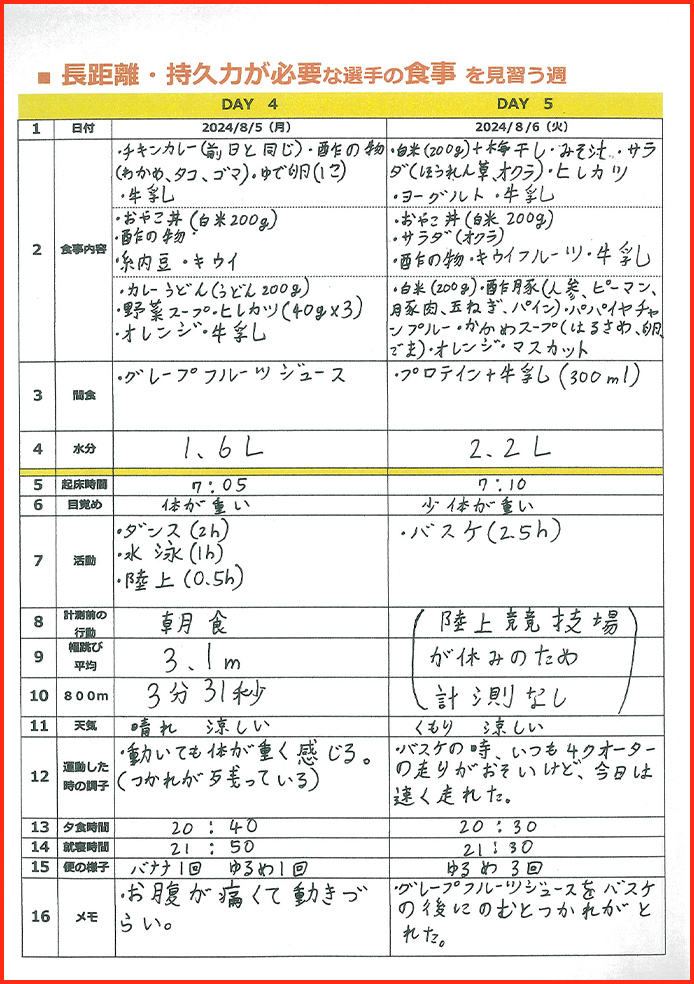 ■ 長距離・持久力が必要な選手の食事 を見習う週
DAY 4 DAY 5
1 日付 2024/8/5（月） 2024/8/6（火）
2 食事内容
・チキンカレー(前日と同じ)・酢の物
(わかめ、タコ、ゴマ)・ゆで卵(1コ)
・牛乳
・白米(200g)+梅干し・みそ汁・サラ
ダ(ほうれん草、オクラ)・ヒレカツ
・ヨーグルト・牛乳
・おやこ丼(白米200g)
・酢の物・
糸内豆・キウイ
・おやこ丼(白米 200g)
・サラダ(オクラ)
・酢の物・キウイフルーツ・牛乳
・カレーうどん(うどん200g)
・野菜スープ・ヒレカツ(40g×3)
・オレンジ・牛乳
・白米(200g)・酢豚(人参、ピーマン、
豚肉、玉ねぎ、パイン)・パパイヤチャ
ンプルー・わかめスープ(はるさめ、卵、
ごま)・オレンジ・マスカット
3 間食 ・グレープフルーツジュース ・プロテイン+牛乳(300ml)
4 水分 1.6L 2.2L
5 起床時間 7:05 7:10
6 目覚め 体が重い 少体が重い
7 活動
・ダンス(2h)
・水泳(1h)
・陸上(0.5h)
・バスケ(2.5h)
8 計測前の
行動 朝食
9 幅跳び
平均 3.1m
10 800m 3分31秒
(陸上競技場
が休みのため
計測なし)
11 天気 晴れ 涼しい くもり 涼しい
12 運動した
時の調子
・動いても体が重く感じる。
(つかれが残っている)
・バスケの時、いつも4クオーター
の走りがおそいけど、今日は
速く走れた。
13 夕食時間 20:40 20:30
14 就寝時間 21:50 21:30
15 便の様子 バナナ1回 ゆるめ1回 ゆるめ 3回
16 メモ
・お腹が痛くて動きづ
らい。
・グレープフルーツジュースをバスケ
の後にのむとつかれがと
れた。